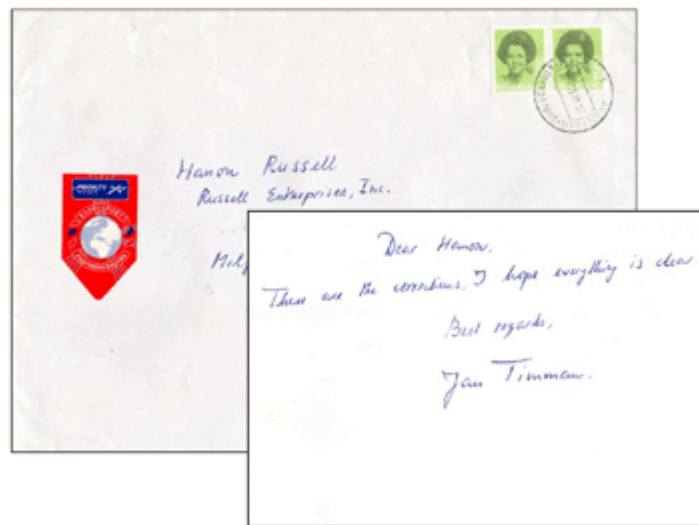 Hanon Russell
Russell Enterprises, Inc.
Milf
PRIORITY
Dear Hanon,
These are the corrections. I hope everything is clear.
Best regards,
Jan Timman.